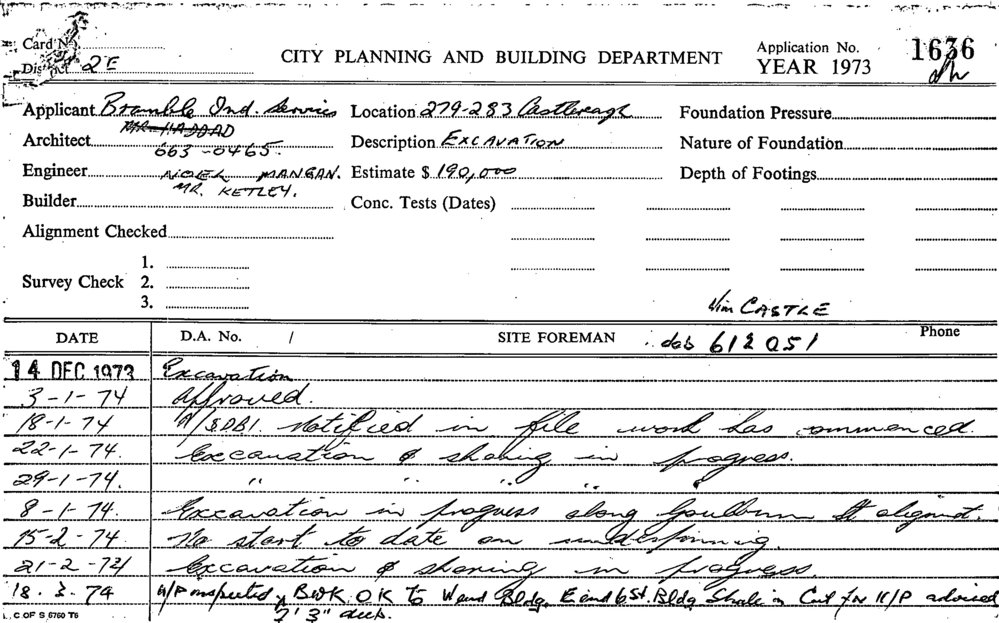 Card No.
District 2E
CITY PLANNING AND BUILDING DEPARTMENT
Application No. 1636
YEAR 1973
Applicant Bramble Ind. Services Location 279-283 Castlereagh Foundation Pressure
MR HADDAD
Architect 663-0465. Description EXCAVATION Nature of Foundation
Engineer NOEL MANGAN. Estimate $ 190,000 Depth of Footings
MR. KETLEY.
Builder Conc. Tests (Dates)
Alignment Checked
1.
Survey Check 2.
3.
CASTLE
DATE D.A. No. / SITE FOREMAN 612051 Phone
14 DEC 1973 Excavation
3-1-74 Approved.
18-1-74 notified in file work has commenced.
22-1-74. Excavation & shoring in progress.
29-1-74. " " " " "
8-1-74. Excavation in progress along Goulburn St alignmt.
15-2-74. No start to date on underpinning.
21-2-74 Excavation & shoring in progress.
18.3.74 U/P inspected BWK OK to W end Bldg. E end 6 St. Bldg Shale in Cut for U/P advised
7' 3"
C OF S 6760 T6